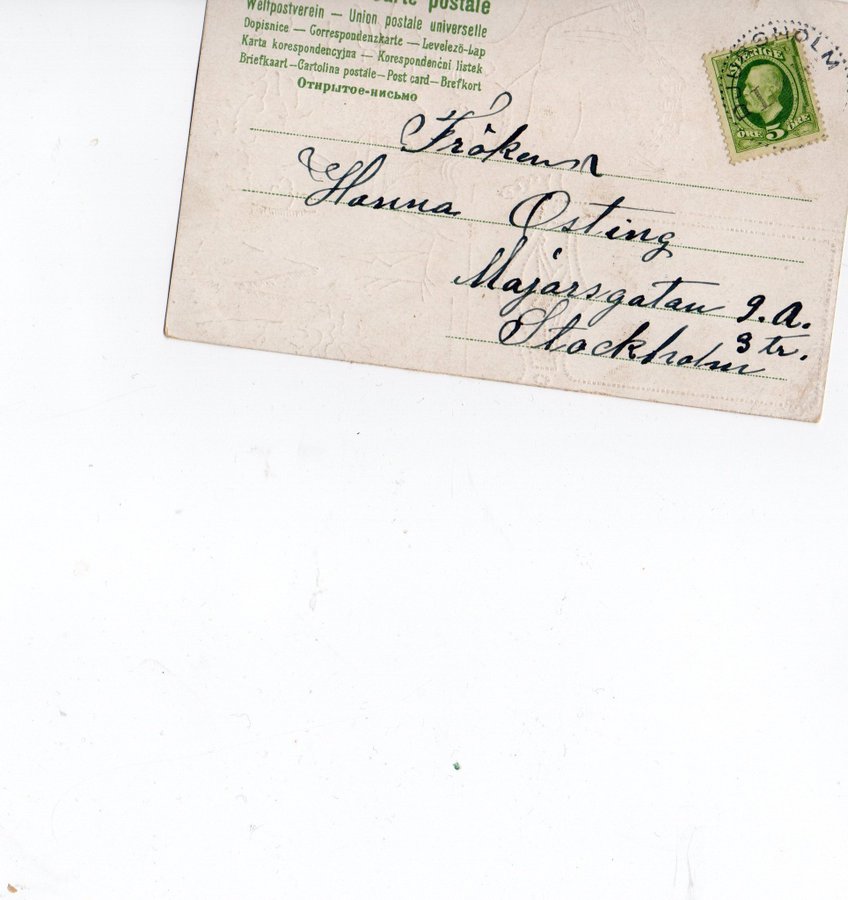 Carte postale
Weltpostverein — Union postale universelle
Dopisnice — Correspondenzkarte — Levelező-Lap
Karta korespondencyjna — Korespondenční listek
Briefkaart — Cartolina postale — Post card — Brefkort
Открытое-письмо
SVERIGE
ÖRE 5 ÖRE
Fröken
Hanna Östing
Majorsgatan 9.A.
3 tr.
Stockholm